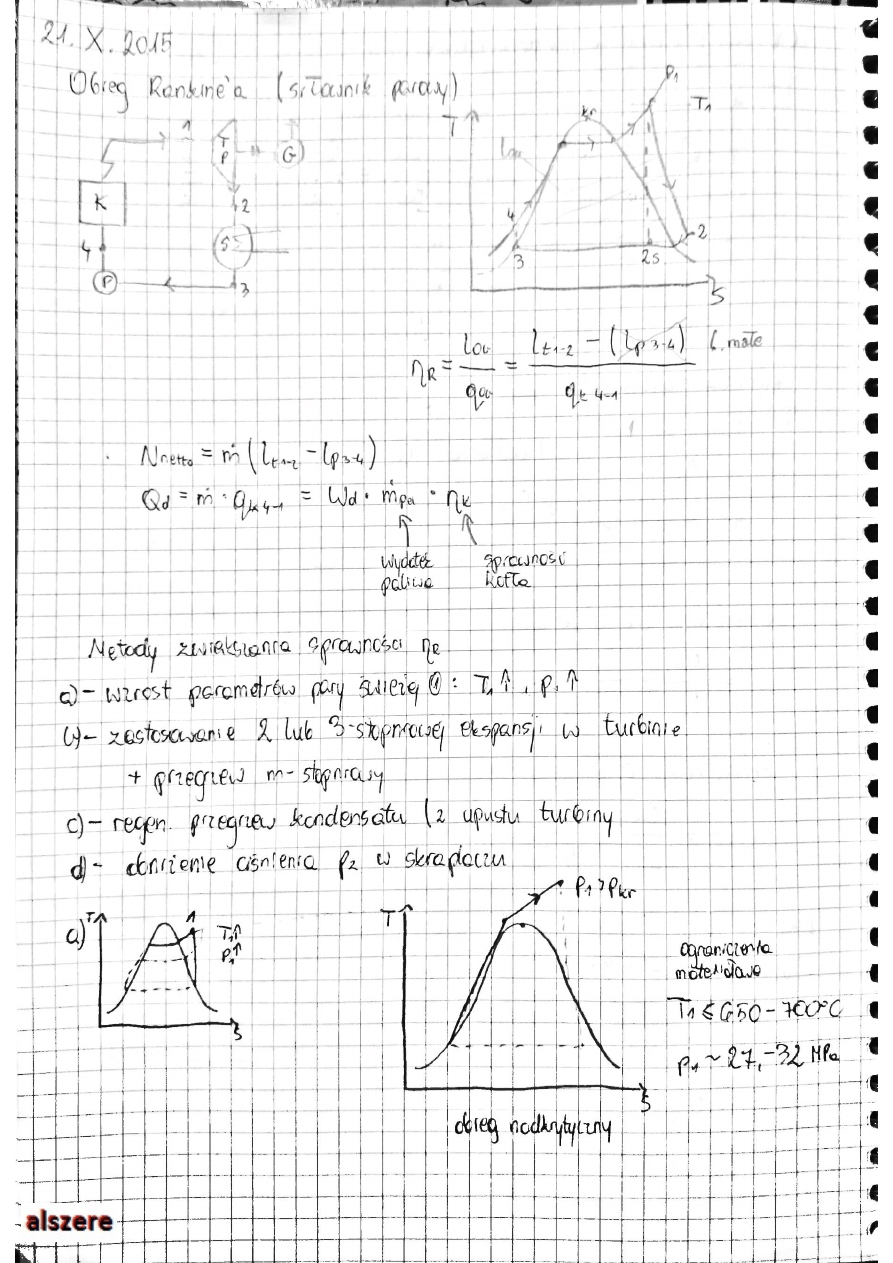 21. X. 2015
Obieg Rankine'a (siłownik parowy)
1
T
P
G
K
2
S
4
P
3
T
kr
P1
T1
lob
4
3
2s
2
S
ηR = lob / qob = (lt1-2 - (lp3-4)) / qt 4-1 b. małe
Nnetto = ṁ (lt1-2 - lp3-4)
Qd = ṁ · qk 4-1 = Wd · ṁpa · ηk
wydatek paliwa
sprawność kotła
Metody zwiększania sprawności ηR
a) - wzrost parametrów pary świeżej ①: T1↑, p1↑
b) - zastosowanie 2 lub 3-stopniowej ekspansji w turbinie
+ przegrzew m-stopniowy
c) - regen. przegrzew kondensatu (z upustu turbiny
d) - obniżenie ciśnienia p2 w skraplaczu
a)
T
1
T1↑
p1↑
S
T
p1 > pkr
S
obieg nadkrytyczny
ograniczenia
materiałowe
T1 ≤ 650 - 700°C
p1 ~ 27,-32 MPa
alszere